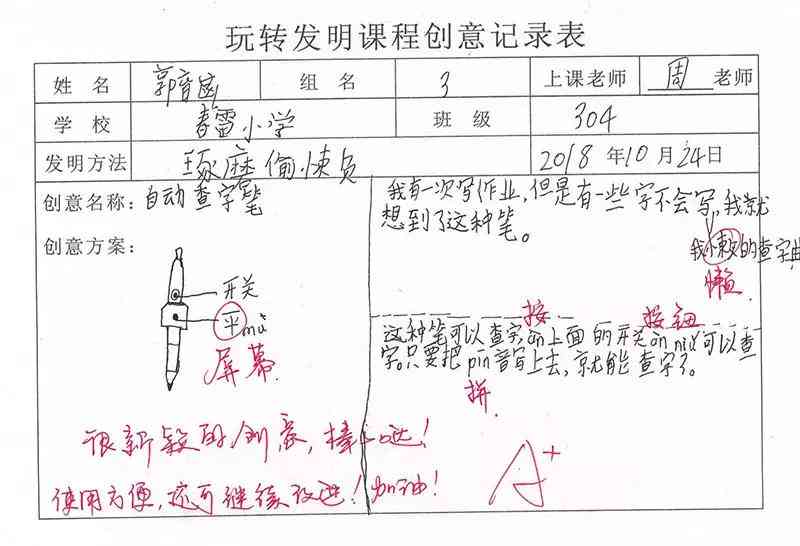 玩转发明课程创意记录表
姓 名 郭音 组 名 3 上课老师 周 老师
学 校 春雷小学 班 级 304
发明方法 琢磨 偷懒 2018 年 10 月 24 日
创意名称：自动查字笔
创意方案：
开关
平mù
屏幕
我有一次写作业，但是有一些字不会写，我就
想到了这种笔。
的查字典
懒
按 按钮
这种笔可以查字，àn上面的开关àn niǔ可以查
字。只要把pin音写上去，就能查字了。
拼
很新颖的创意，棒！
使用方便，还可继续改进！加油！
A+